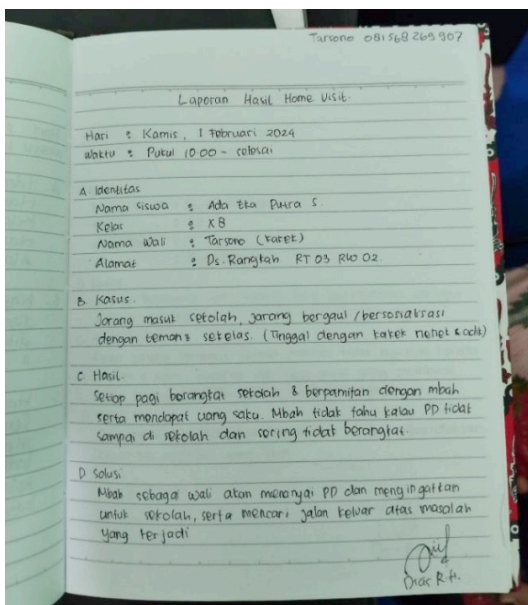 Tarsono 081568265907
Laporan Hasil Home Visit.
Hari : Kamis, 1 Februari 2024
Waktu : Pukul 10.00 - selesai
A. Identitas
Nama Siswa : Ada Eka Putra S.
Kelas : X8
Nama Wali : Tarsono (Kakek)
Alamat : Ds. Rangkah RT 03 RW 02.
B. Kasus.
Jarang masuk sekolah, jarang bergaul / bersosialisasi
dengan teman² sekelas. (Tinggal dengan kakek nenek & adik)
C. Hasil.
Setiap pagi berangkat sekolah & berpamitan dengan mbah
serta mendapat uang saku. Mbah tidak tahu kalau PD tidak
sampai di sekolah dan sering tidak berangkat.
D. Solusi
Mbah sebagai wali akan menanyai PD dan mengingatkan
untuk sekolah, serta mencari jalan keluar atas masalah
yang terjadi
Dias R.H.